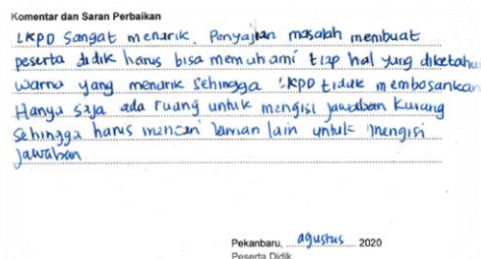 Komentar dan Saran Perbaikan
LKPD Sangat menarik. Penyajian masalah membuat
peserta didik harus bisa memahami tiap hal yang diketahu
warna yang menarik sehingga LKPD tidak membosankan
Hanya saja ada ruang untuk mengisi jawaban kurang
sehingga harus mencari laman lain untuk mengisi
jawaban
Pekanbaru, agustus 2020
Peserta Didik